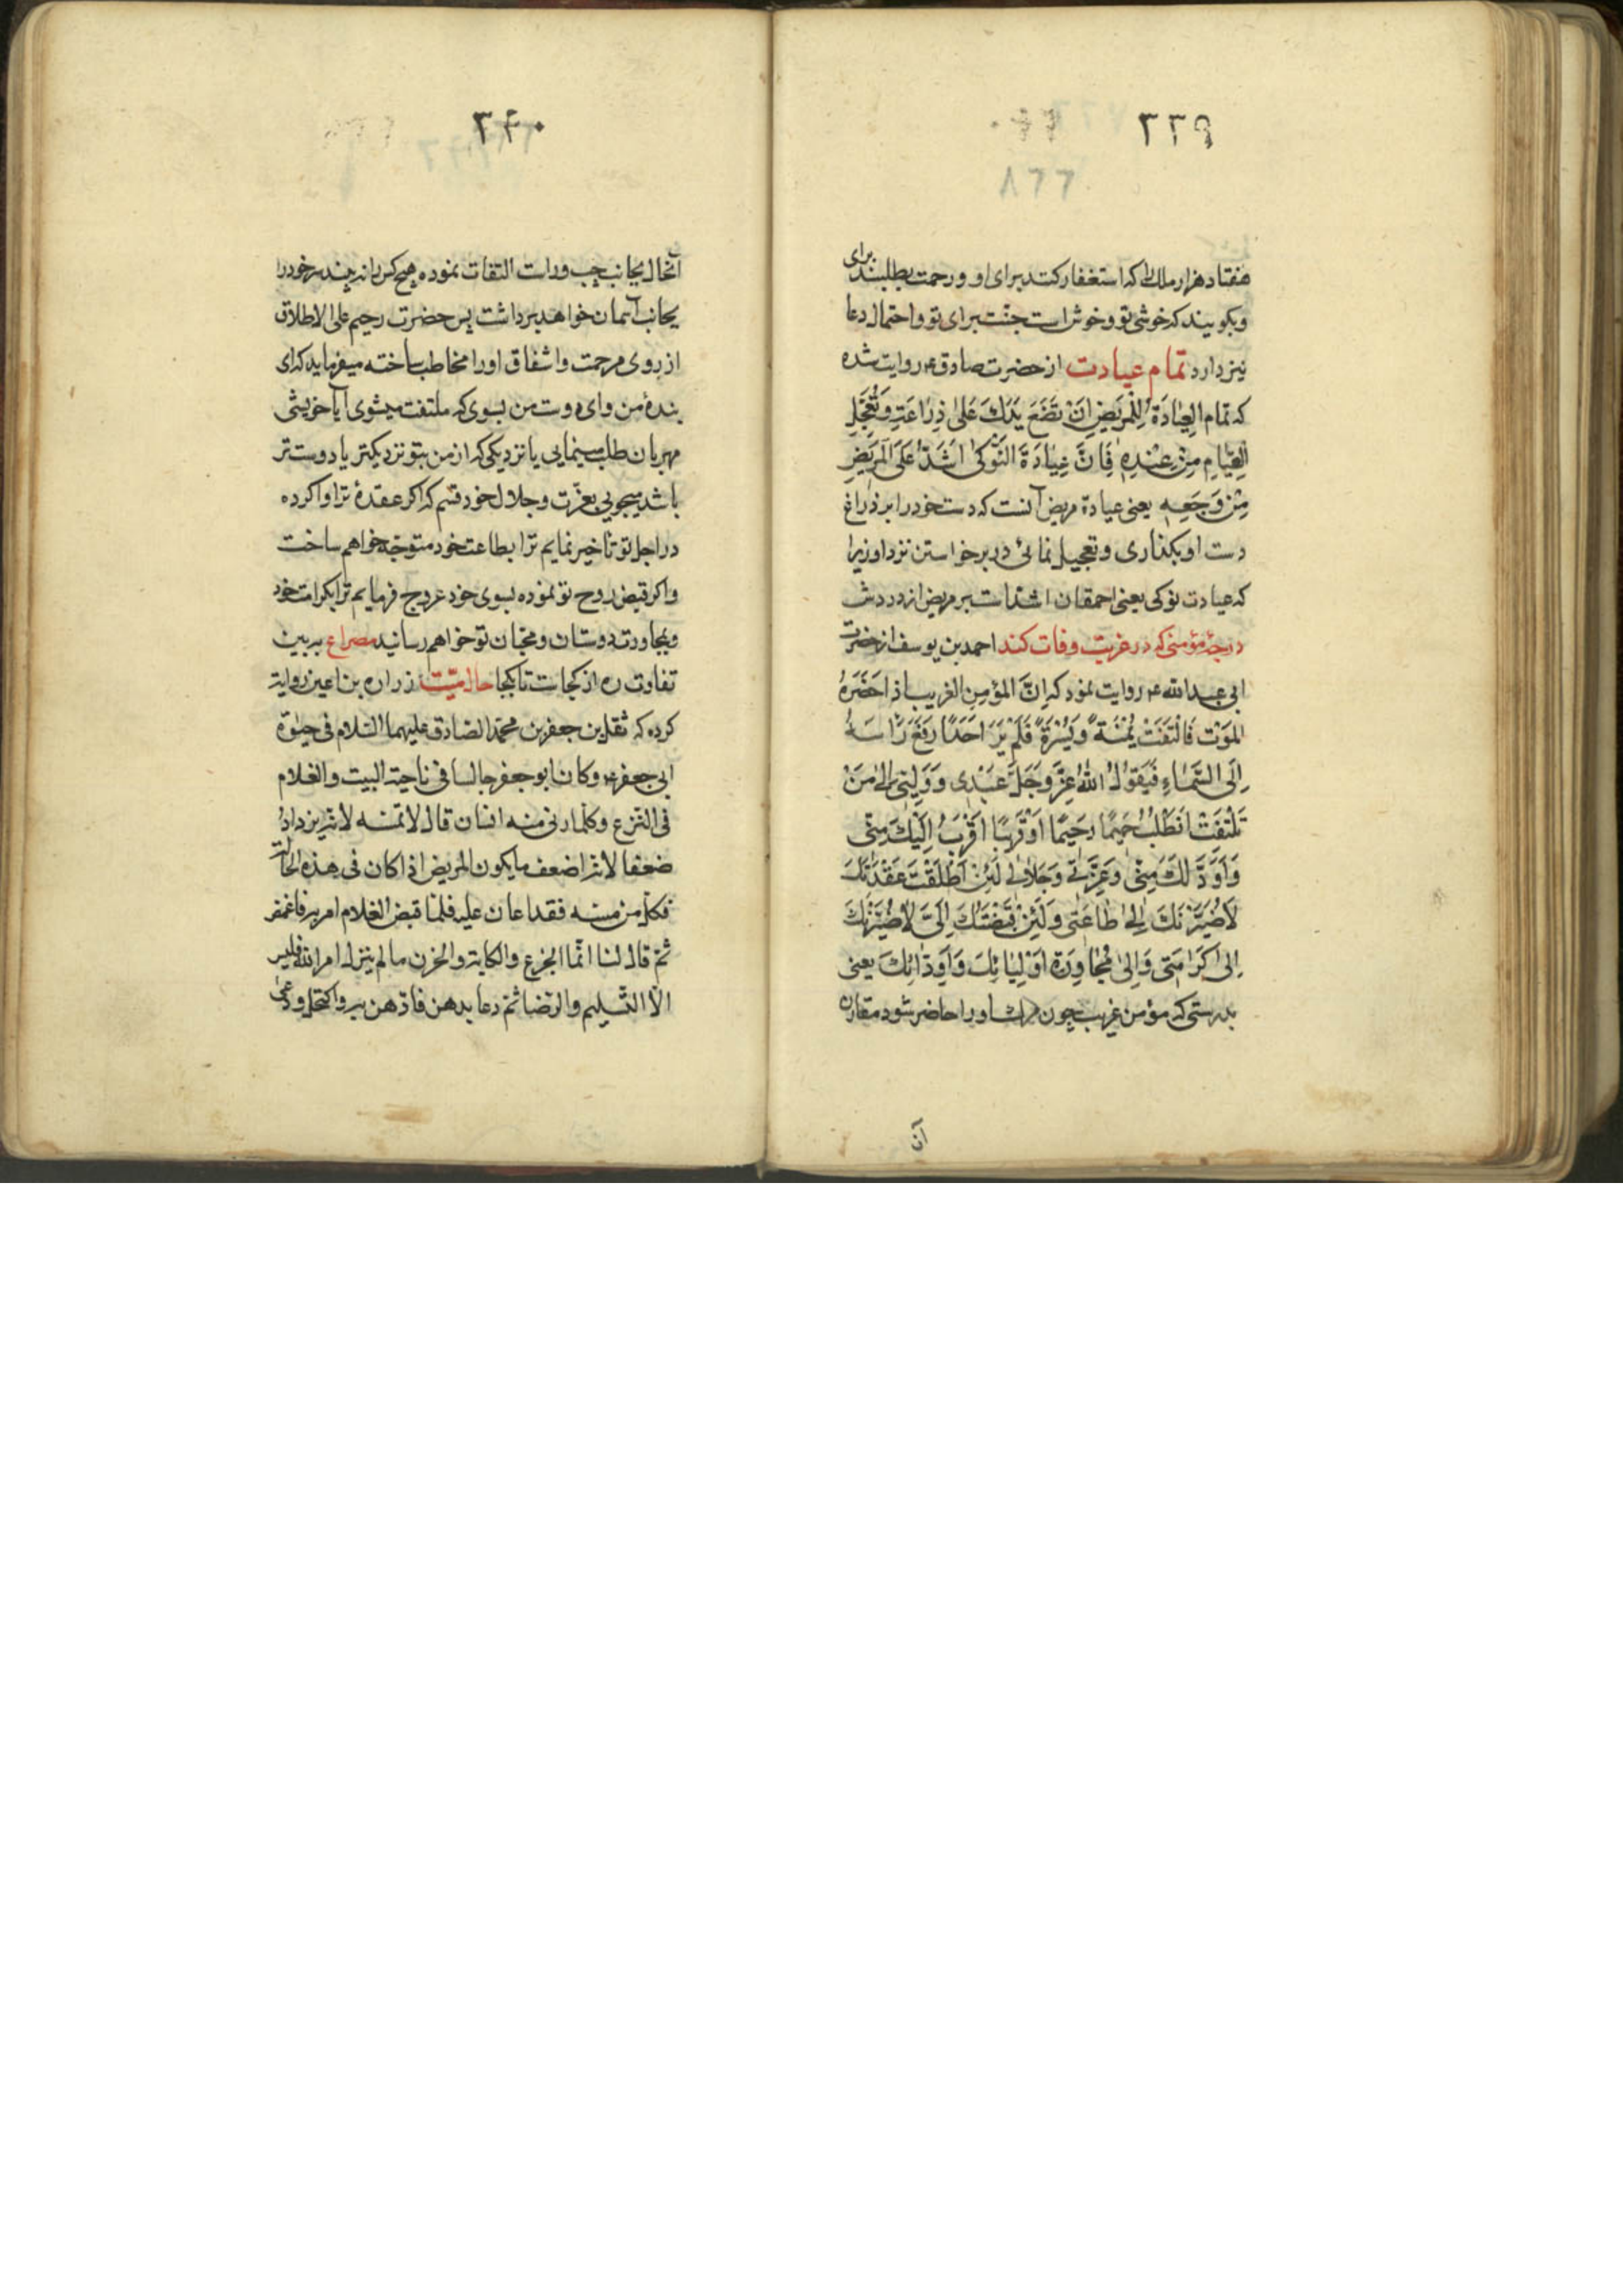 ٣٣٩
٨٦٦
هفتاد هزار ملك را که استغفار کنند برای او و رحمت بطلبند برای
و بکویند که خوشی تو و خوش است جنّت برای تو و احتمال دعا
نیز دارد تمام عیادت از حضرت صادق ع روایت شده
که تمام العِیٰادَة لِلْمَریضِ اَنْ تَضَعَ یَدَكَ عَلیٰ ذِرٰاعَهِ وَتُعَجِّلِ
القِیٰامِ مِنْ عِنْدِهِ فَاِنَّ عِیٰادَةَ النَّوْکیٰ اَشَدُّ عَلَی المَریضِ
مِنْ وَجَعِهِ یعنی عیادة مریض آنست که دست خود را بر ذراع
دست او بکذاری و تعجیل نمائی در برخواستن نزد او زیرا
که عیادت نوکی یعنی احمقان اشدّ است بر مریض از دردش
درجهٔ مؤمنی که در غربت وفات کند احمد بن یوسف از حضرت
ابی عبد الله ع روایت نمود که اِنَّ المؤمِن الغریب اذ احَضَرَهُ
المَوْت فَالْتَفَتَ یُمْنَةً وَیُسْرَةً فَلَمْ یَرَ اَحَدًا رَفَعَ رَاسَهُ
اِلَی السَّمٰاءِ فَیَقوُلُ اللّٰهُ عَزَّ وَجَلَّ عَبْدی وَ وَلِیّی اِلیٰ مَنْ
تَلْتَفِتُ اتَطْلُبُ حَمیمًا رَحیمًا اَوْ قَریبًا اَقْرَبُ اِلَیْكَ مِنّی
وَاَوَدَّ لَكَ مِنّی وَعِزَّتی وَجَلٰالی لَئِنْ اَطْلَقْتُ عَقْدَتَكَ
لَاُصَیِّرَنَّكَ اِلیٰ طٰاعَتی وَلَئِنْ قَبَضْتُكَ اِلَیَّ لَاُصَیِّرَنَّكَ
اِلیٰ کَرٰامَتی وَاِلیٰ مُجٰاوِرَة اَوْلِیٰائِكَ وَاَوِدّٰائِكَ یعنی
بدرستی که مؤمن غریب چون مرك او را حاضر شود مقارن
آن
٣٤٠
آنحال بجانب چپ و راست التفات نموده هیچ کس را نه بیند سر خود را
بجانب آسمان خواهد برداشت پس حضرت رحیم علی الاطلاق
از روی مرحمت و اشفاق او را مخاطب ساخته میفرماید که ای
بندهٔ من و ای دوست من بسوی که ملتفت میشوی آیا خویشی
مهربان طلب مینمایی یا نزدیکی که از من بتو نزدیکتر یا دوست تر
باشد میجویی بعزّت و جلال خود قسم که اکر عقدهٔ ترا وا کرده
در اجل تو تأخیر نمایم ترا بطاعت خود متوجّه خواهم ساخت
و اکر قبض روح تو نموده بسوی خود عروج فرمایم ترا بکرامت خود
و بمجاورت دوستان و محبّان تو خواهم رسانید مصراع ببین
تفاوت ره از کجاست تا بکجا حال میّت زراره بن اعین روایة
کرده که ثقل بن جعفر بن محمّد الصّادق علیهما السّلام فی حیوٰة
ابی جعفر ع وکان ابو جعفر جالسا فی ناحیة البیت والغلام
فی النّزع وکلّما دنی منه انسان قال لا تمسّه لانّه یزداد
ضعفا لانّه اضعف ما یکون المریض اذا کان فی هذه الحالة
فکلّ من مسّه فقد اعان علیه فلمّا قبض الغلام امر به فاغمض
ثمّ قال لنا انّما الجزع والکابة والحزن ما لم ینزل امر اللّٰه فلیس
الّا التّسلیم والرّضا ثمّ دعا بدهن فادّهن به واکتحل ودعی